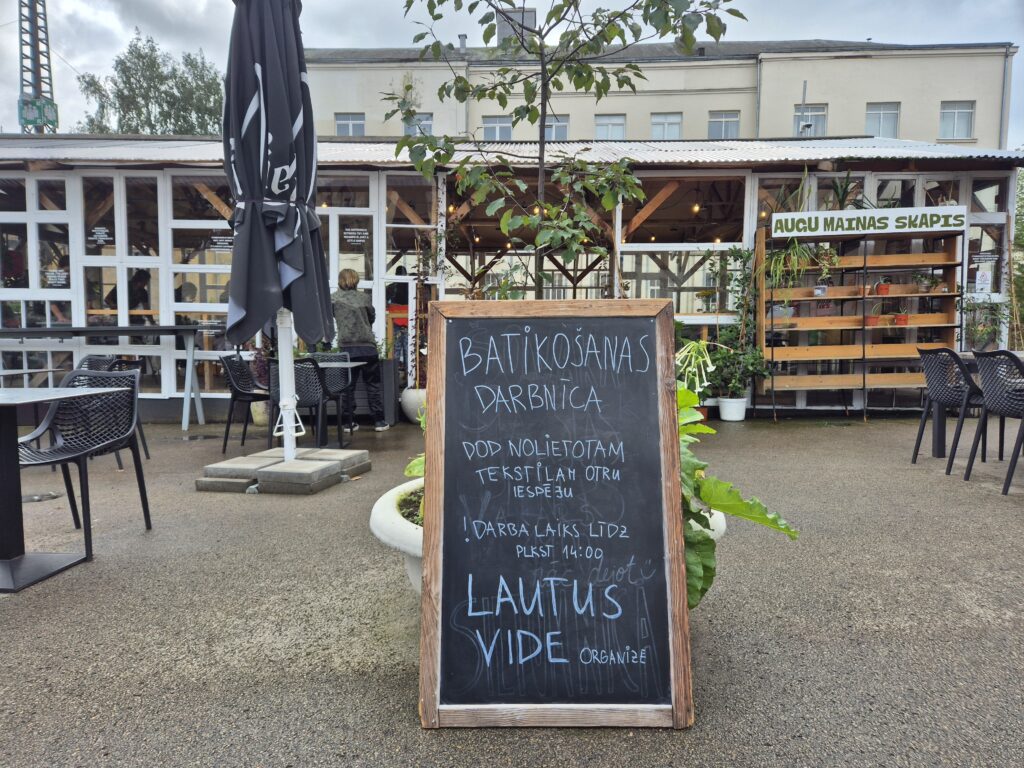 AUGU MAINAS SKAPIS
BATIKOŠANAS
DARBNĪCA
DOD NOLIETOTAM
TEKSTILAM OTRU
IESPĒJU
! DARBA LAIKS LĪDZ
PLKST 14:00
nāc dejot
LAUTUS
VIDE ORGANIZĒ